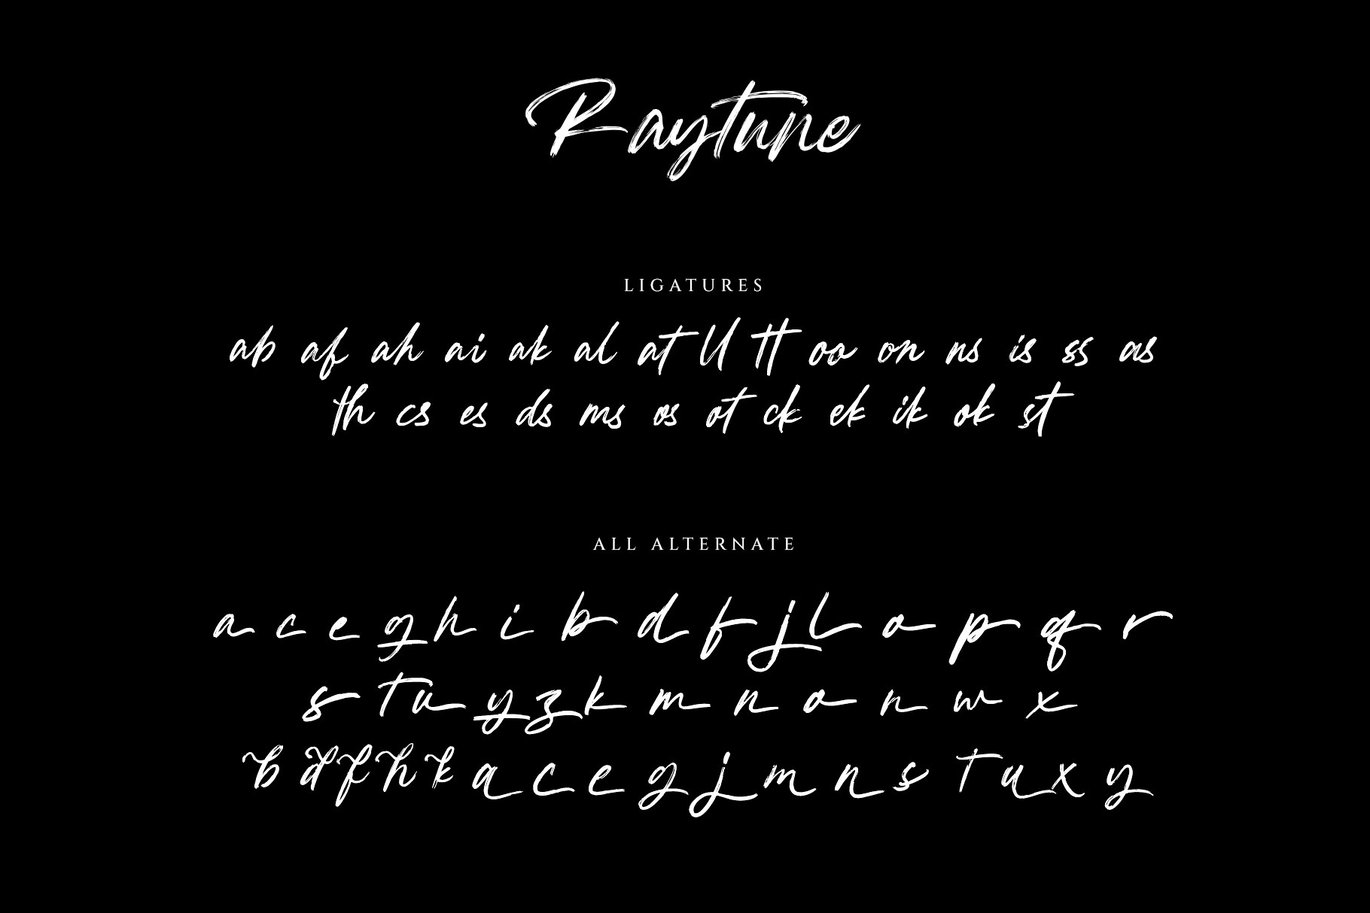 Raytune
LIGATURES
ab af ah ai ak al at ll tt oo on ns is ss as
th cs es ds ms os ot ck ek ik ok st
ALL ALTERNATE
a c e g h i b d f j l o p q r
s t u y z k m n o n w x
b d f h k a c e g j m n s t u x y